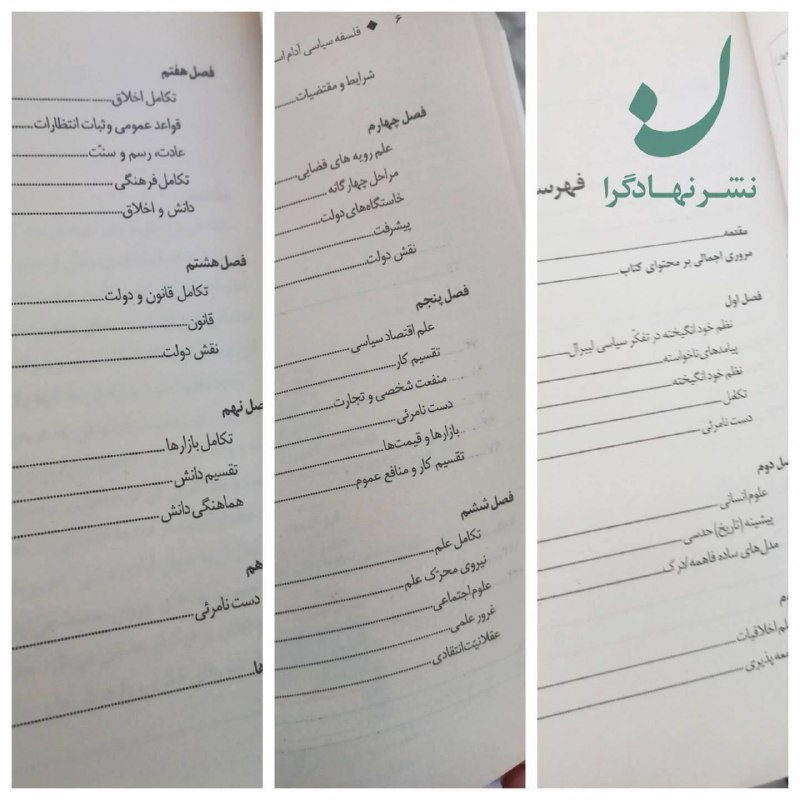 نشر نهادگرا
فهرس
مقدمه
مروری اجمالی بر محتوای کتاب
فصل اول
نظم خودانگیخته در تفکّر سیاسی لیبرال
پیامدهای ناخواسته
نظم خودانگیخته
تکامل
دست نامرئی
دوم
علوم انسانی
پیشینه (تاریخ) حدسی
مدل‌های ساده فاهمه/درک
اخلاقیات
پذیری
۶ ◆ فلسفه سیاسی آدام اس
شرایط و مقتضیات
فصل چهارم
علم رویه های قضایی
مراحل چهارگانه
خاستگاه‌های دولت
پیشرفت
نقش دولت
فصل پنجم
علم اقتصاد سیاسی
تقسیم کار
منفعت شخصی و تجارت
دست نامرئی
بازارها و قیمت‌ها
تقسیم کار و منافع عموم
فصل ششم
تکامل علم
نیروی محرّک علم
علوم اجتماعی
غرور علمی
عقلانیّت انتقادی
فصل هفتم
تکامل اخلاق
قواعد عمومی و ثبات انتظارات
عادت، رسم و سنّت
تکامل فرهنگی
دانش و اخلاق
فصل هشتم
تکامل قانون و دولت
قانون
نقش دولت
صل نهم
تکامل بازارها
تقسیم دانش
هماهنگی دانش
هم
دست نامرئی
ها